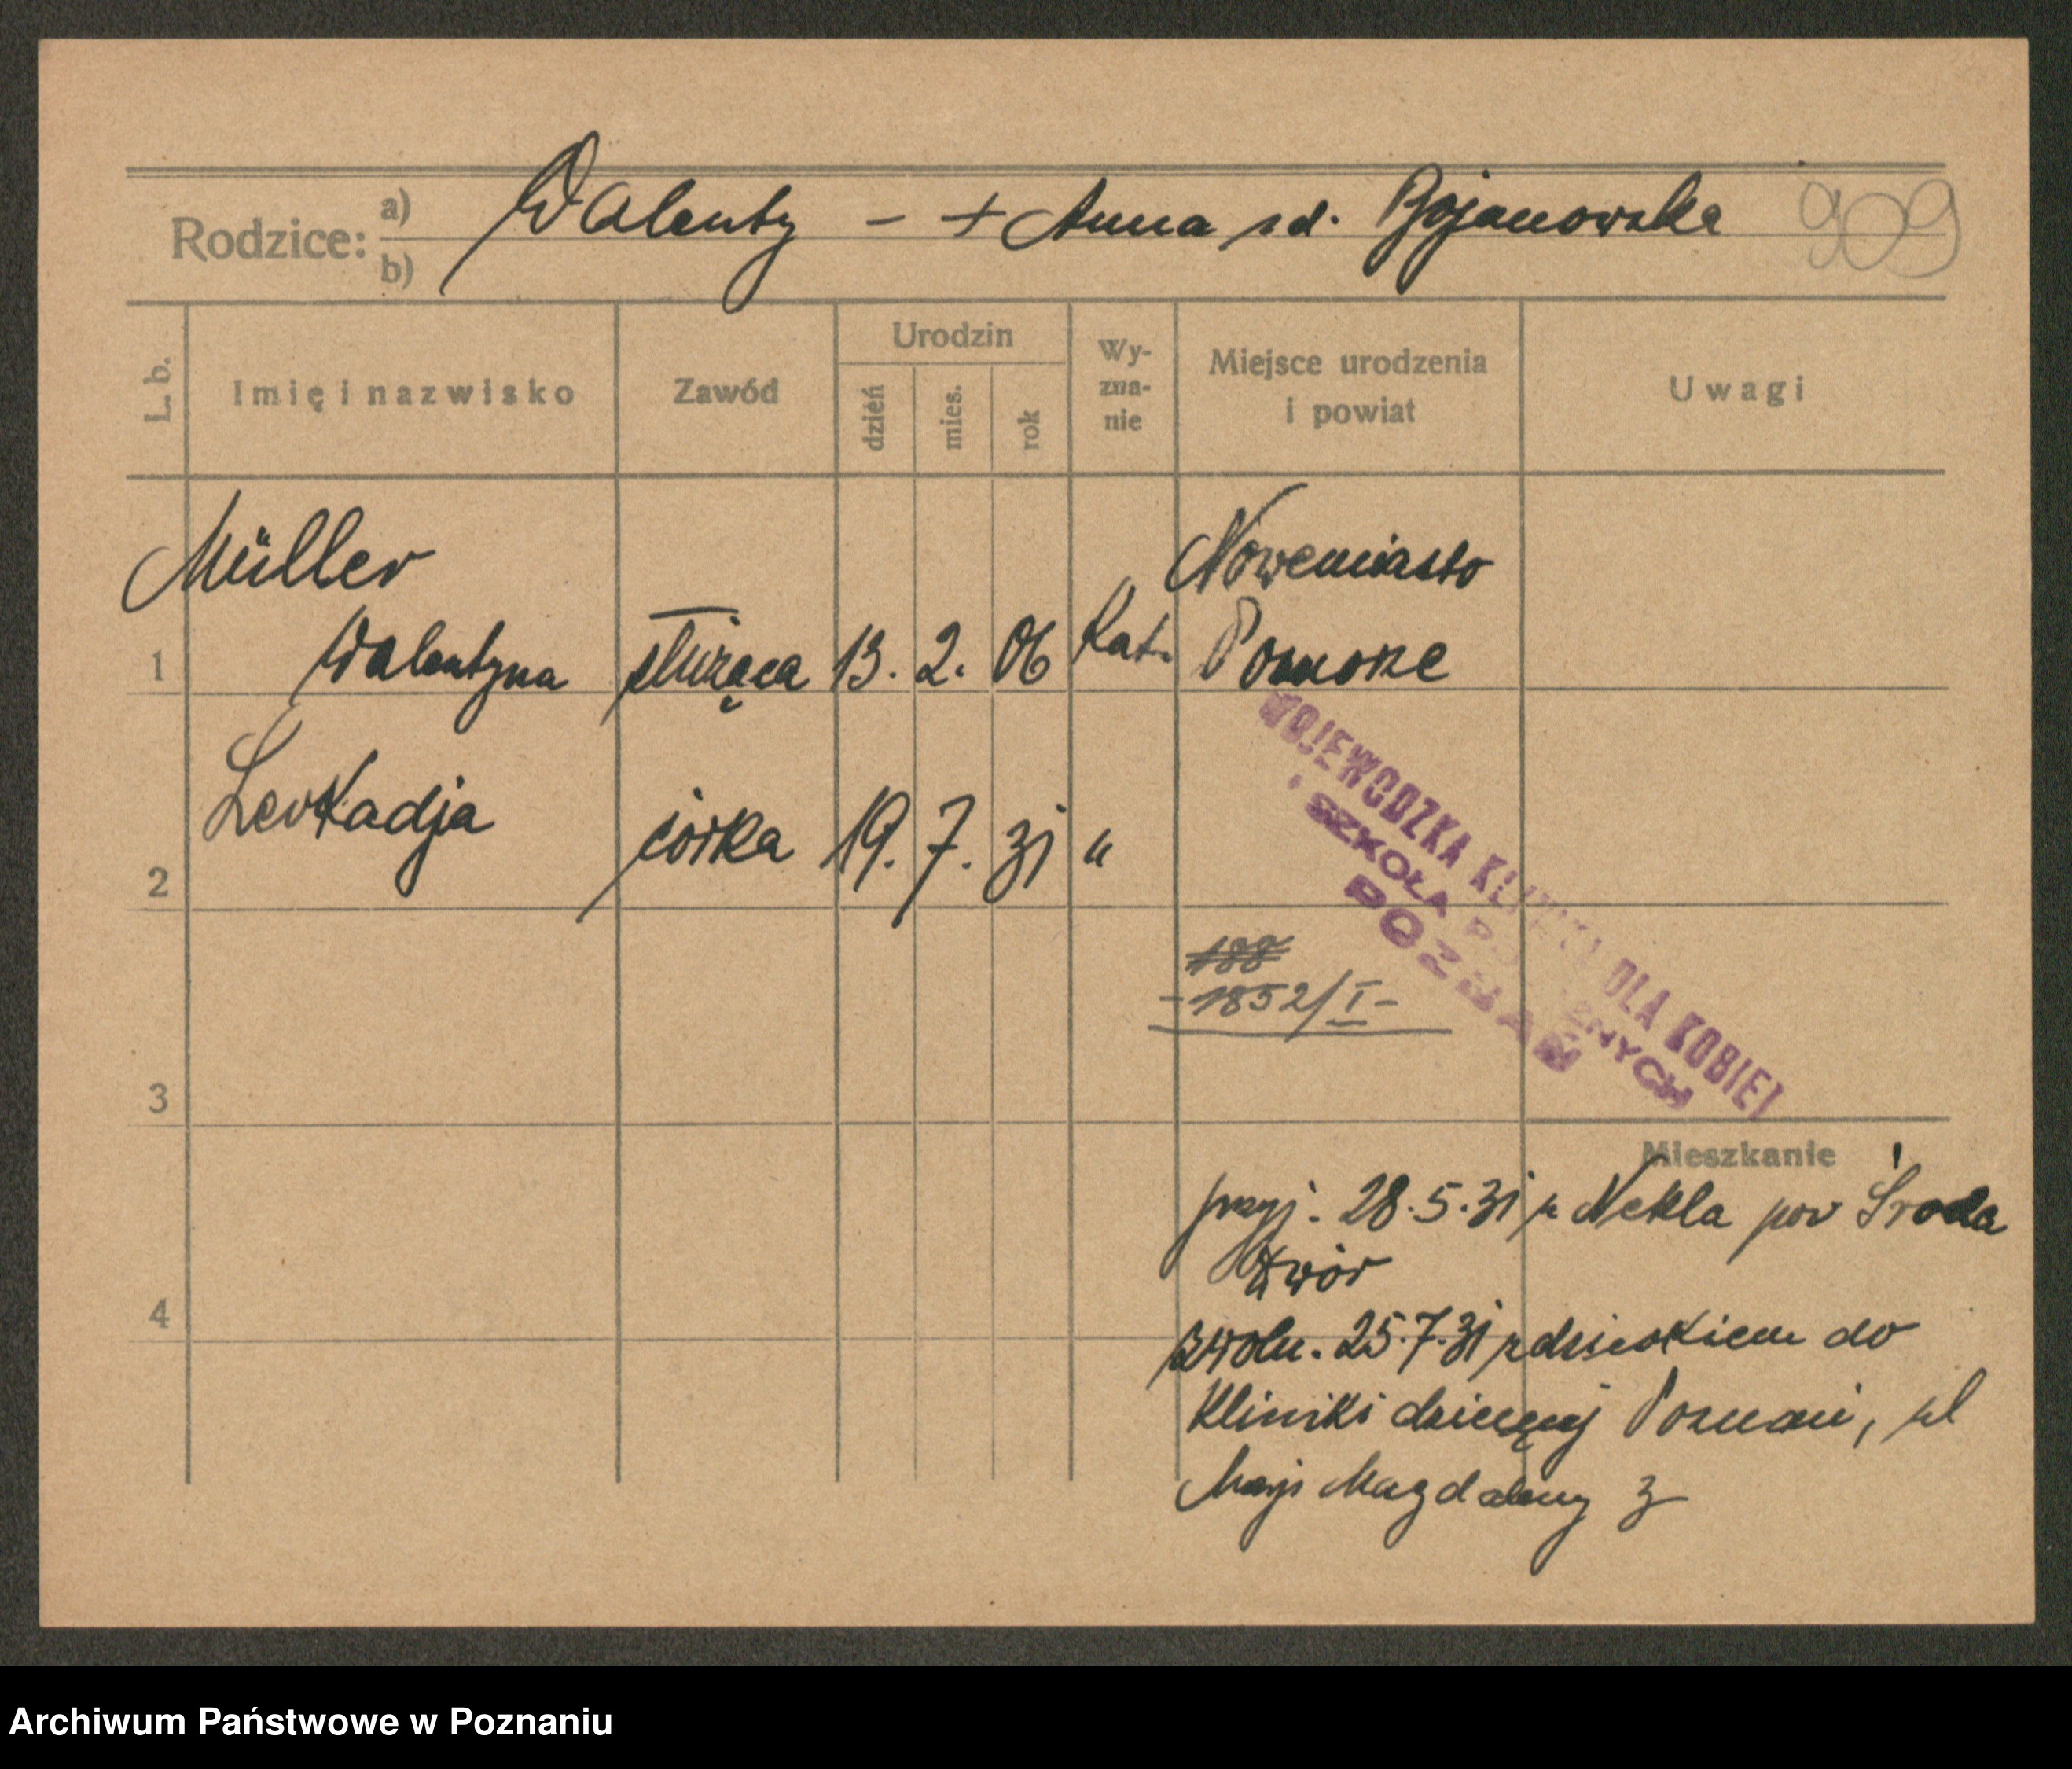 Rodzice: a) b) Walenty - + Anna zd. Bojanowska 909
L. b. Imię i nazwisko Zawód Urodzin dzień mies. rok Wyznanie Miejsce urodzenia i powiat Uwagi
Müller Nowemiasto
1 Walentyna służąca 13. 2. 06 Kat. Pomorze
2 Leokadja córka 19. 7. 31 "
WOJEWODZKA KLINIKA DLA KOBIET
i SZKOŁA POŁOŻNYCH
POZNAŃ
188
-1852/I-
3
Mieszkanie
przyj. 28.5.31 z Nekla pow Środa
dwór
4
zwoln. 25.7.31 z dzieckiem do
Kliniki dziecięcej Poznań, ul
Maryi Magdaleny 3
Archiwum Państwowe w Poznaniu